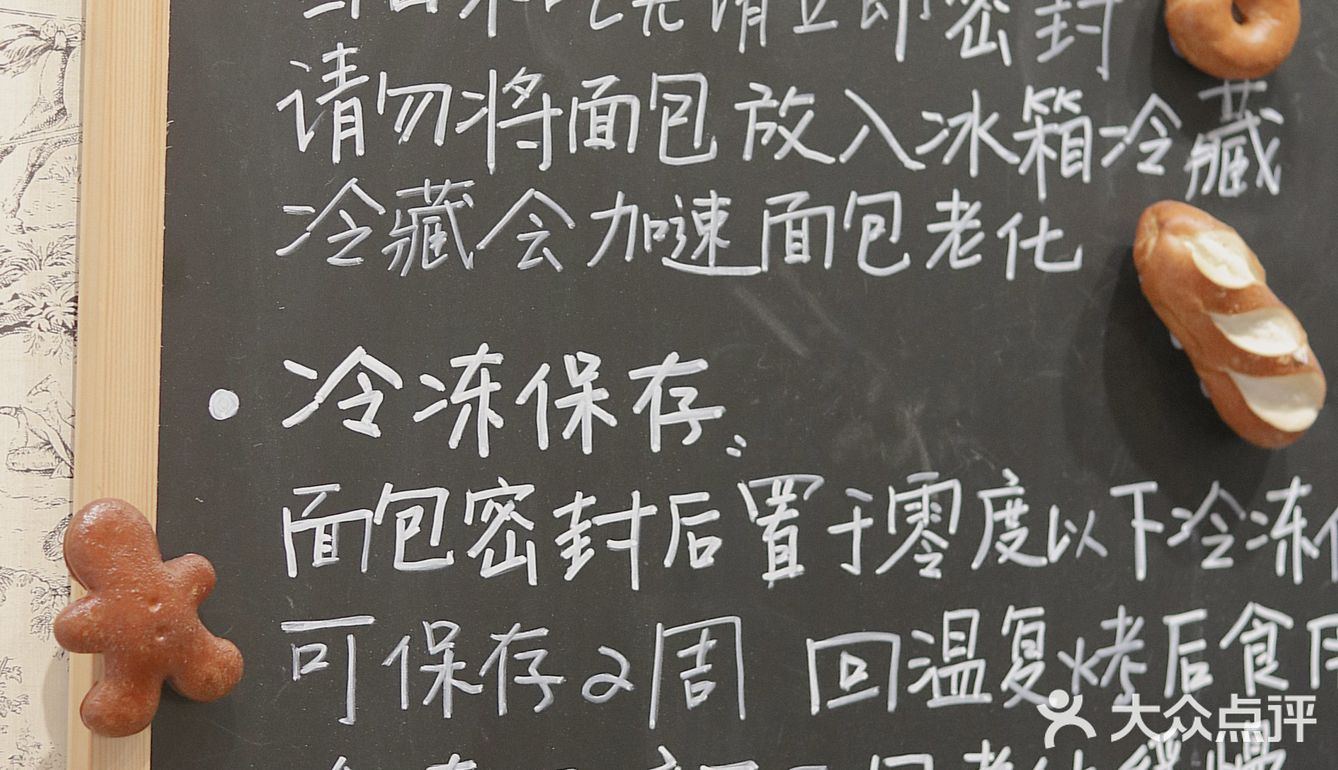 当日未吃完请立即密封
请勿将面包放入冰箱冷藏
冷藏会加速面包老化
冷冻保存:
面包密封后置于零度以下冷冻
可保存2周 回温复烤后食用
大众点评